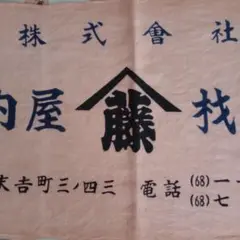 株式會社
屋 藤 材
末吉町三ノ四三 電話 (68)一一
(68)七